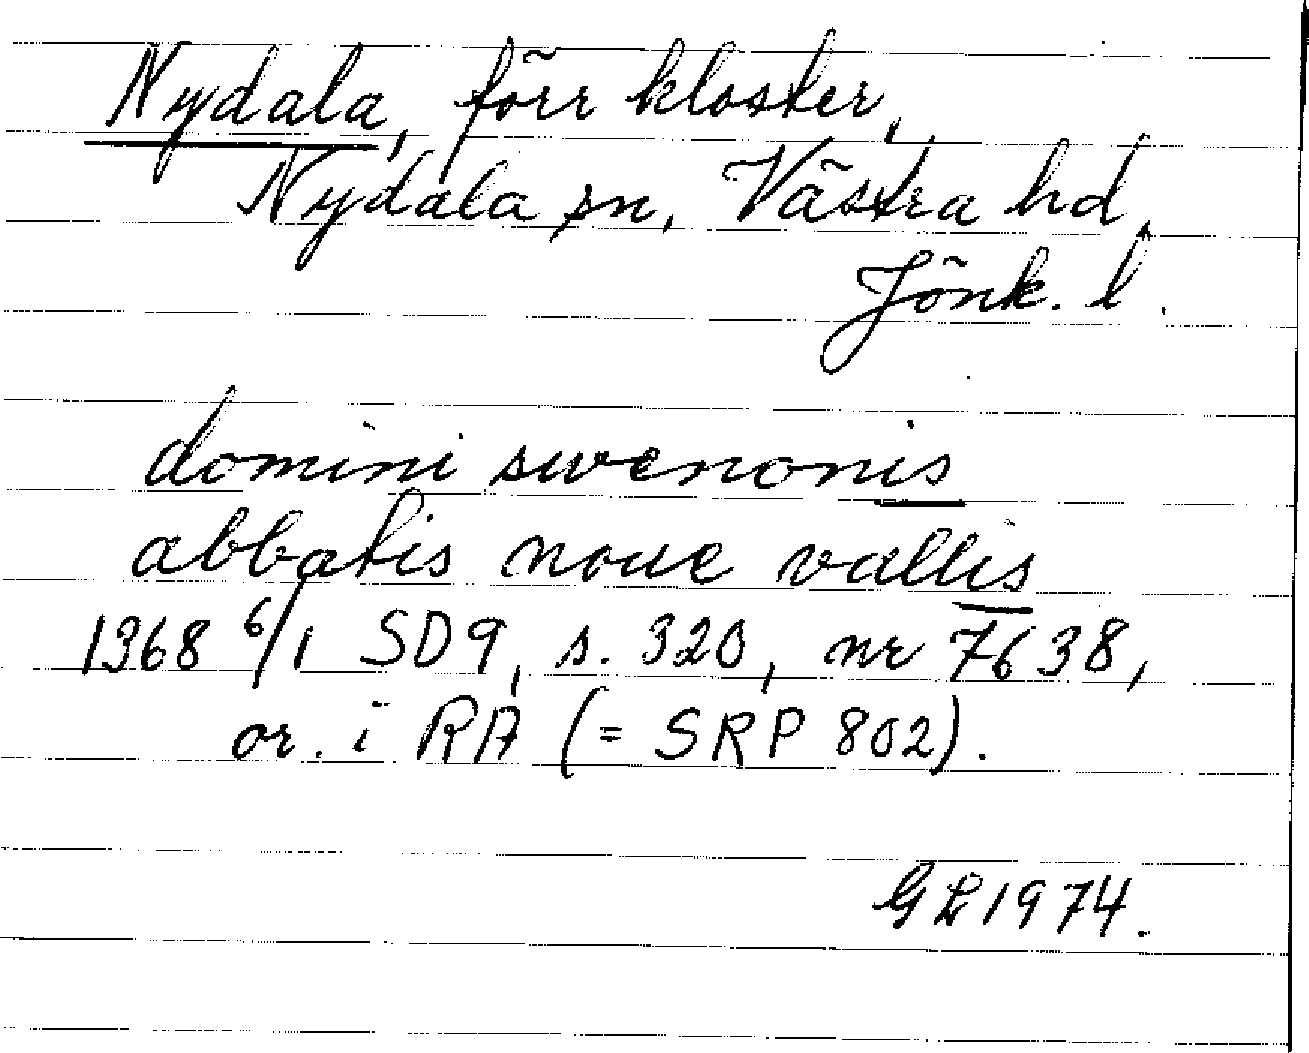 Nydala, förr kloster,
Nydala sn, Västra hd,
Jönk. l.
domini swenonis
abbatis noue vallis
1368 6/1 SD9, s. 320, nr 7638,
or. i RA (= SRP 802).
GL 1974.